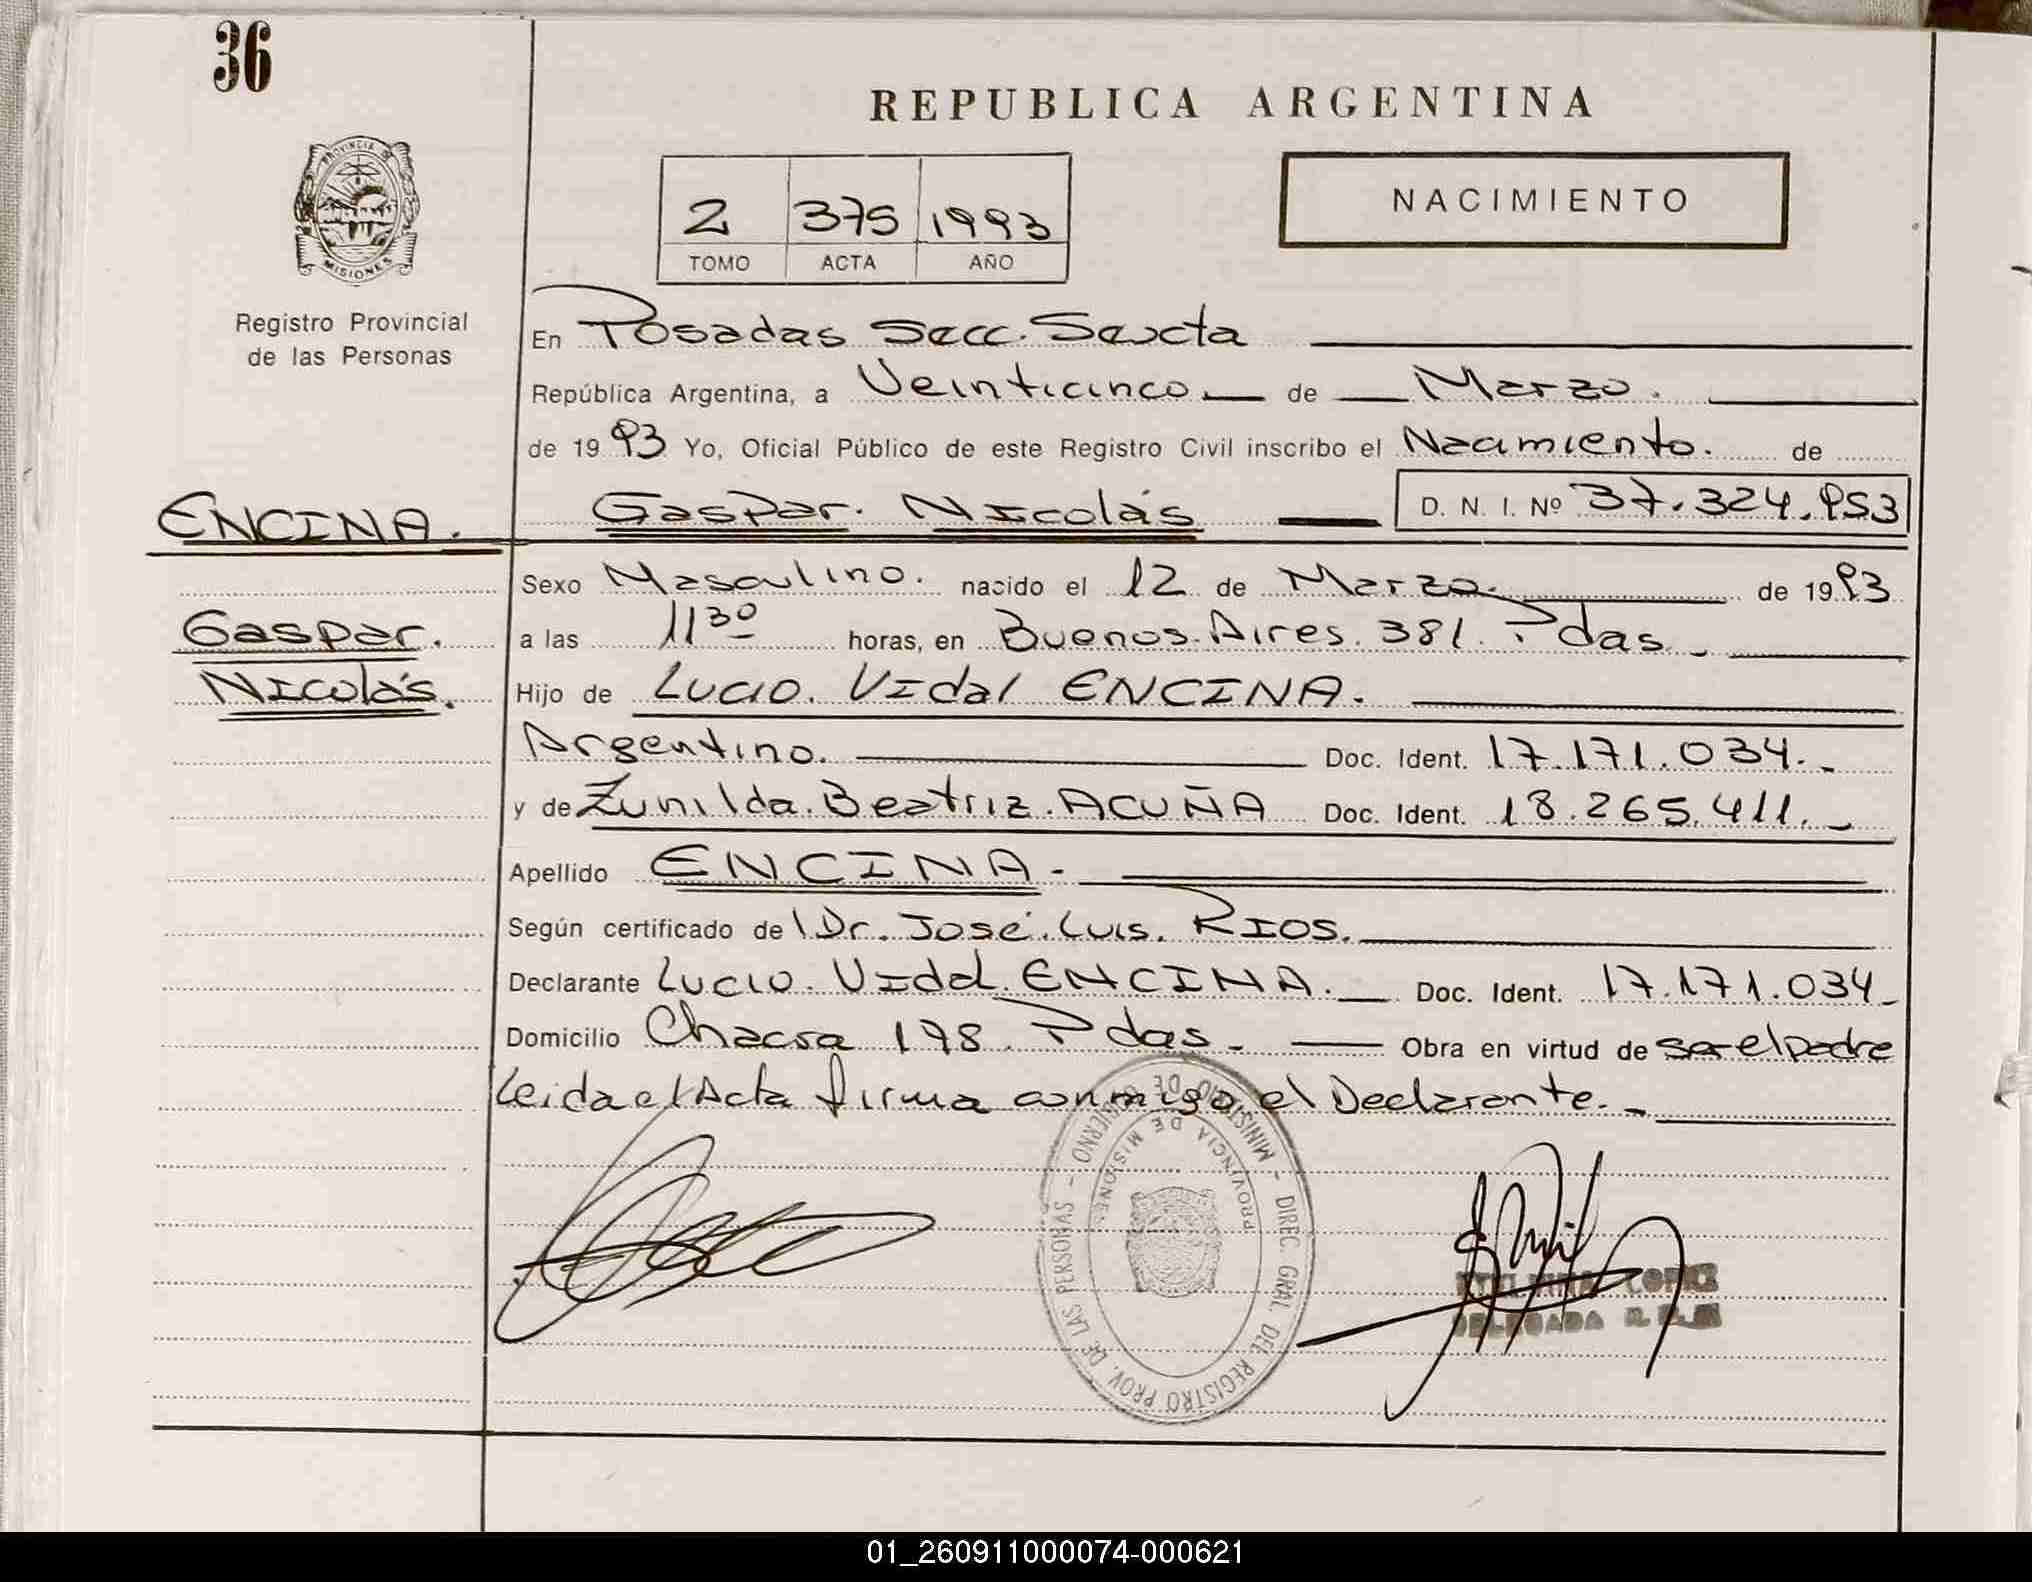 36
REPUBLICA ARGENTINA
PROVINCIA DE
MISIONES
Registro Provincial
de las Personas
2 375 1993
TOMO ACTA AÑO
NACIMIENTO
En Posadas Secc. Sexta
República Argentina, a Veinticinco de Marzo.
de 1993 Yo, Oficial Público de este Registro Civil inscribo el Nacimiento. de
ENCINA. Gaspar. Nicolás D. N. I. Nº 37.324.953
Sexo Masculino. nacido el 12 de Marzo. de 1993
Gaspar. a las 11 30 horas, en Buenos Aires. 381. Pdas.
Nicolás. Hijo de Lucio. Vidal ENCINA.
Argentino. Doc. Ident. 17.171.034.
y de Zunilda. Beatriz. ACUÑA Doc. Ident. 18.265.411.
Apellido ENCINA.
Según certificado de l Dr. José. Luis. RIOS.
Declarante Lucio. Vidal. ENCINA. Doc. Ident. 17.171.034
Domicilio Chacra 198. Pdas. Obra en virtud de ser el padre
Leida el Acta firma conmigo el Declarante.
MINISTERIO DE GOBIERNO - DIREC. GRAL. DEL REGISTRO PROV. DE LAS PERSONAS -
PROVINCIA DE MISIONES
DELEGADA
01_260911000074-000621